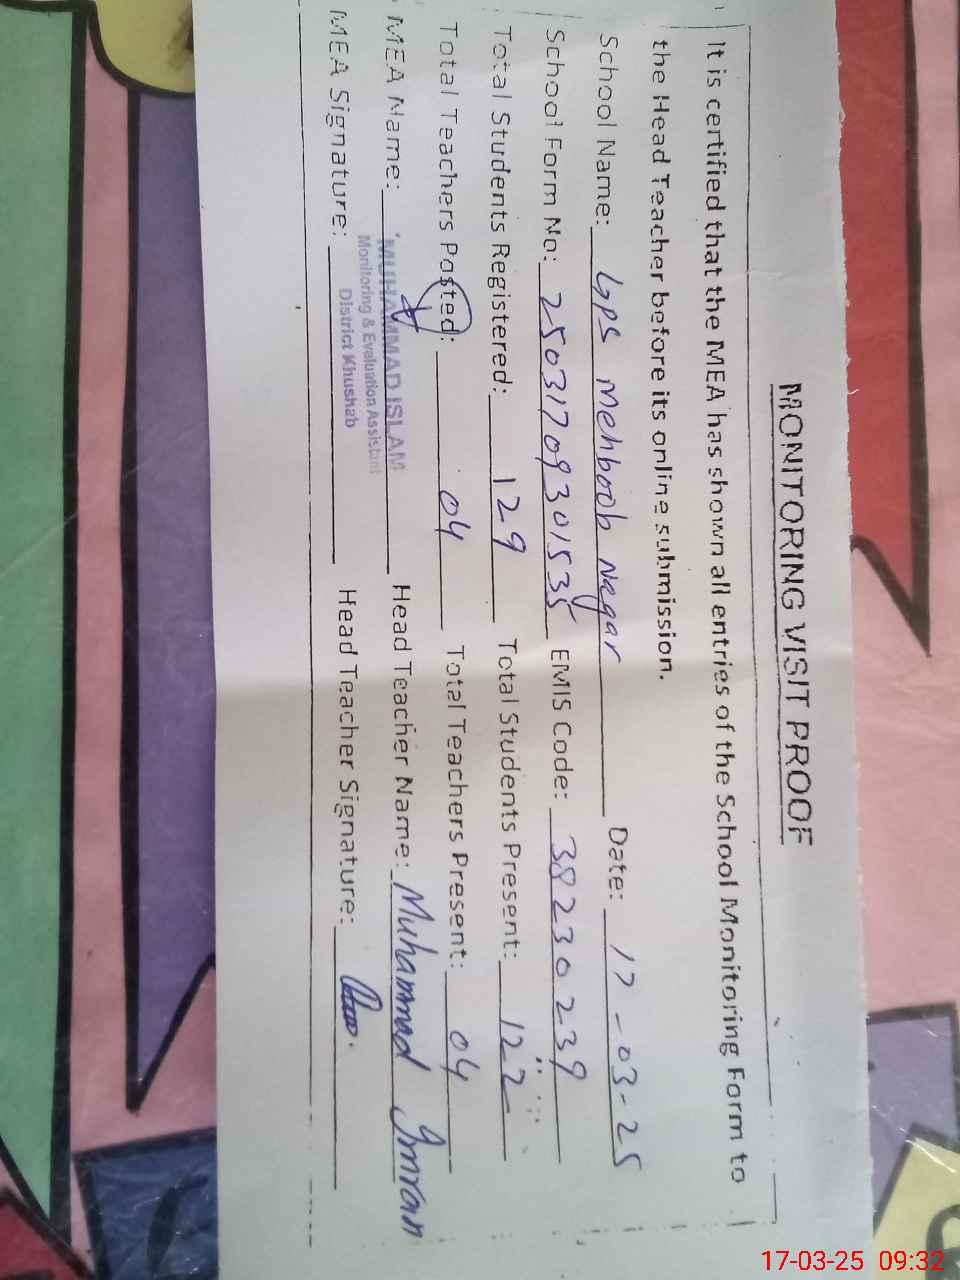 MONITORING VISIT PROOF
It is certified that the MEA has shown all entries of the School Monitoring Form to
the Head Teacher before its online submission.
School Name: GPS Mehboob Nagar Date: 17-03-25
School Form No: 25031709301535 EMIS Code: 38230239
Total Students Registered: 129 Total Students Present: 122
Total Teachers Posted: 04 Total Teachers Present: 04
MEA Name: MUHAMMAD ISLAM Head Teacher Name: Muhammad Imran
Monitoring & Evaluation Assistant
District Khushab
MEA Signature: Head Teacher Signature:
17-03-25 09:32